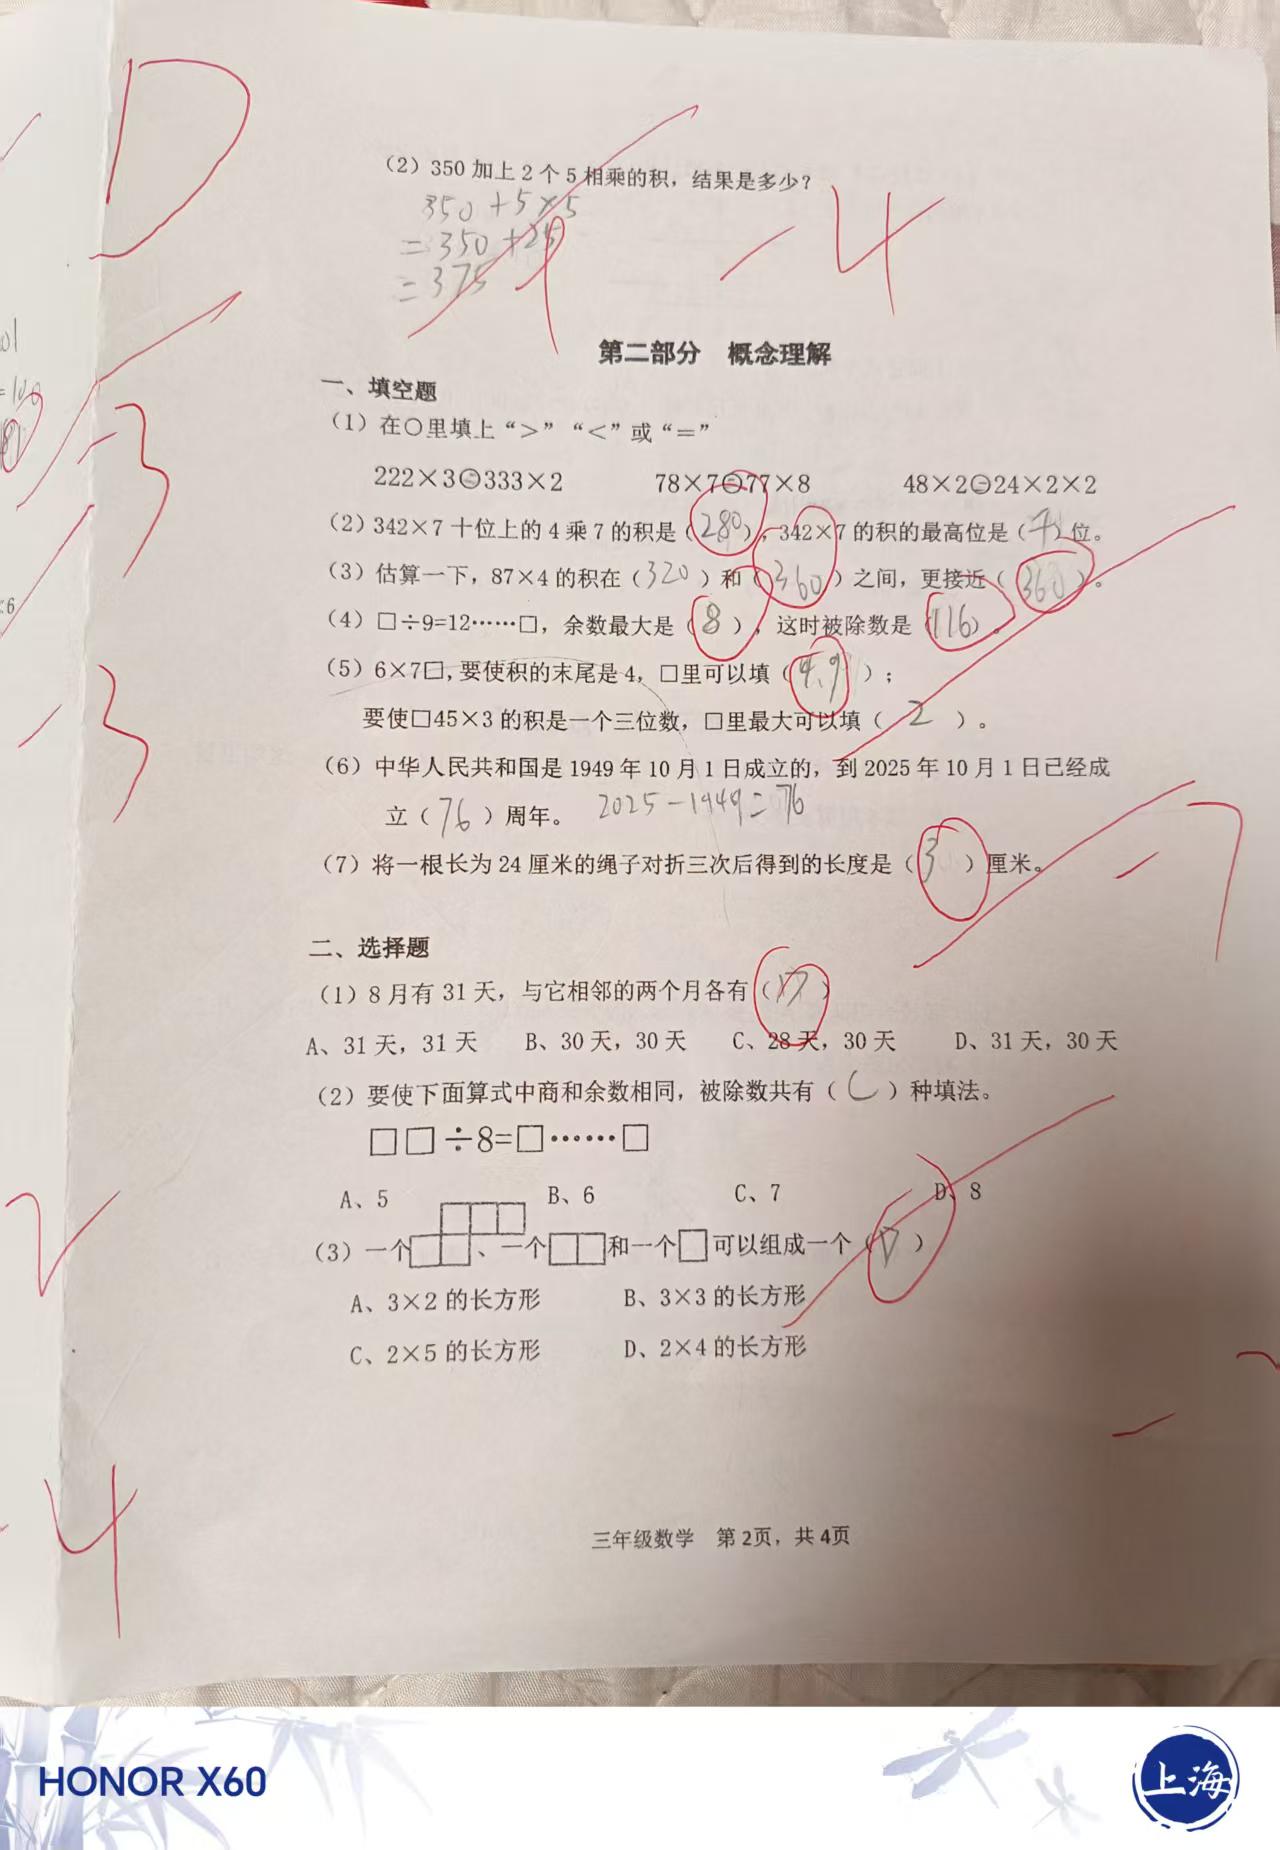 D
(2)350加上2个5相乘的积，结果是多少？
350+5×5
=350+25
=375
-4
第二部分 概念理解
一、填空题
(1)在○里填上“>”“<”或“=”
222×3=333×2 78×7 77×8 48×2=24×2×2
(2)342×7十位上的4乘7的积是(280),342×7的积的最高位是( 位。
(3)估算一下，87×4的积在(320)和(360)之间，更接近(360)。
(4)□÷9=12……□，余数最大是(8)，这时被除数是(116)。
-3
(5)6×7□,要使积的末尾是4，□里可以填(4、9)；
要使□45×3的积是一个三位数，□里最大可以填(2)。
(6)中华人民共和国是1949年10月1日成立的，到2025年10月1日已经成
立(76)周年。 2025-1949=76
-3
-7
(7)将一根长为24厘米的绳子对折三次后得到的长度是(3)厘米。
二、选择题
(1)8月有31天，与它相邻的两个月各有(D)
A、31天，31天 B、30天，30天 C、28天，30天 D、31天，30天
(2)要使下面算式中商和余数相同，被除数共有(C)种填法。
□□÷8=□……□
A、5 B、6 C、7 D、8
(3)一个、一个和一个□可以组成一个(D)
A、3×2的长方形 B、3×3的长方形
C、2×5的长方形 D、2×4的长方形
-4
三年级数学 第2页，共4页
HONOR X60
上海